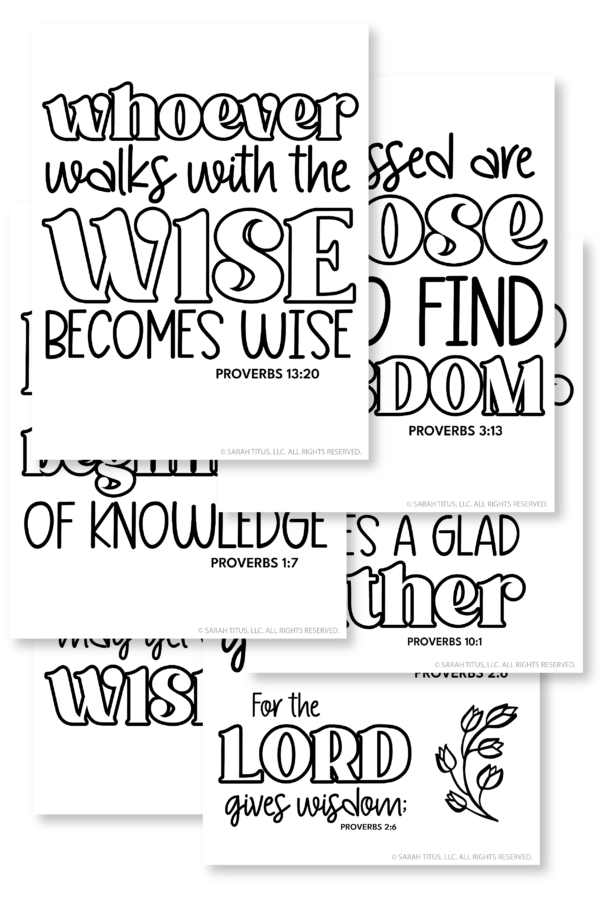 whoever
walks with the
WISE
BECOMES WISE
PROVERBS 13:20
© SARAH TITUS, LLC. ALL RIGHTS RESERVED.
ssed are
ose
O FIND
SDOM
PROVERBS 3:13
© SARAH TITUS, LLC. ALL RIGHTS RESERVED.
beginn
OF KNOWLEDGE
PROVERBS 1:7
© SARAH TITUS, LLC. ALL RIGHTS RESERVED.
ES A GLAD
ther
PROVERBS 10:1
© SARAH TITUS, LLC. ALL RIGHTS RESERVED.
may get
WIS
PROVERBS 2:6
For the
LORD
gives wisdom;
PROVERBS 2:6
© SARAH TITUS, LLC. ALL RIGHTS RESERVED.